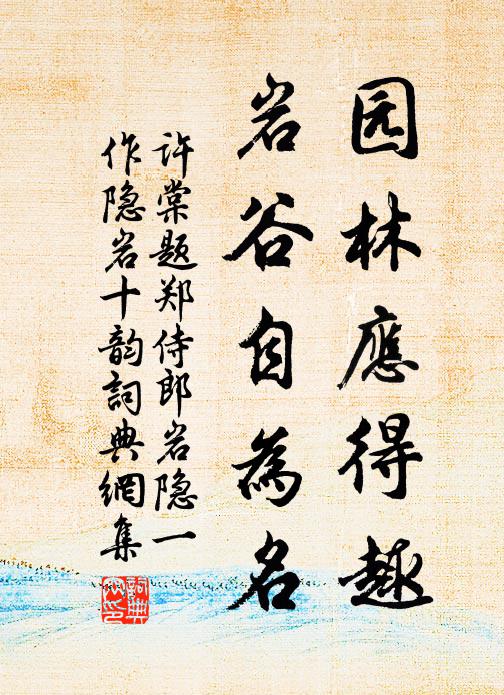 园林應得趣
岩谷自為名
許棠题郑侍郎岩隐一
作隐岩十韵詞典網集